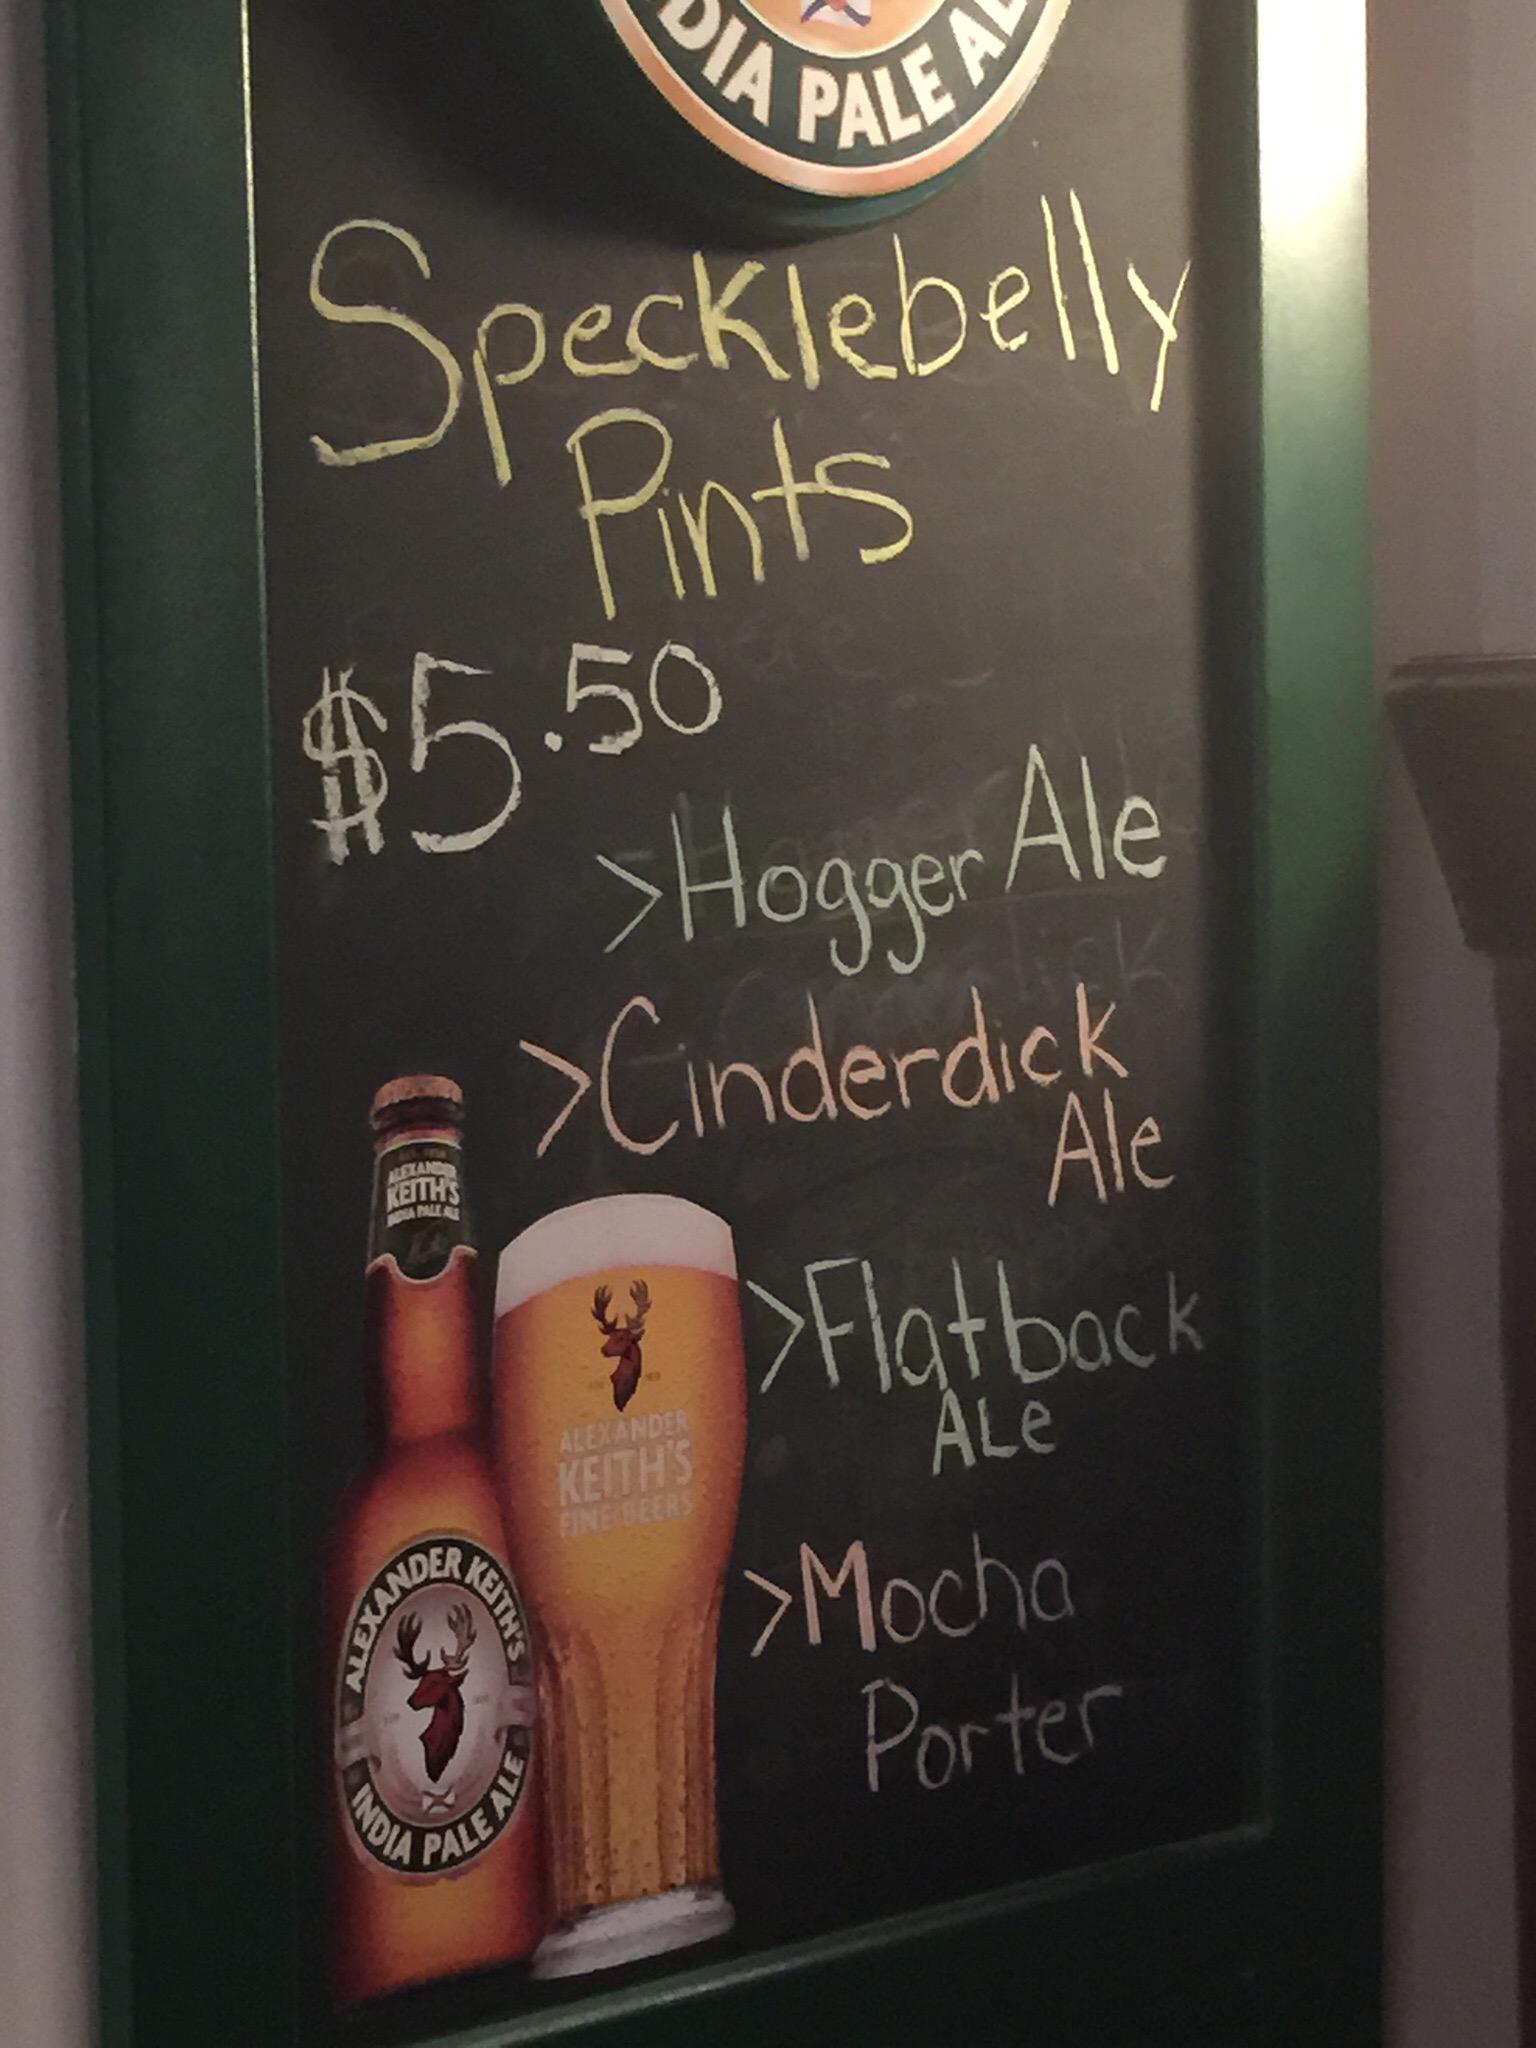 INDIA PALE ALE
Specklebelly
Pints
$5.50
>Hogger Ale
>Cinderdick
Ale
>Flatback
ALe
>Mocha
Porter
ALEXANDER
KEITH'S
INDIA PALE ALE
ALEXANDER
KEITH'S
FINE BEERS
ALEXANDER KEITH'S
INDIA PALE ALE